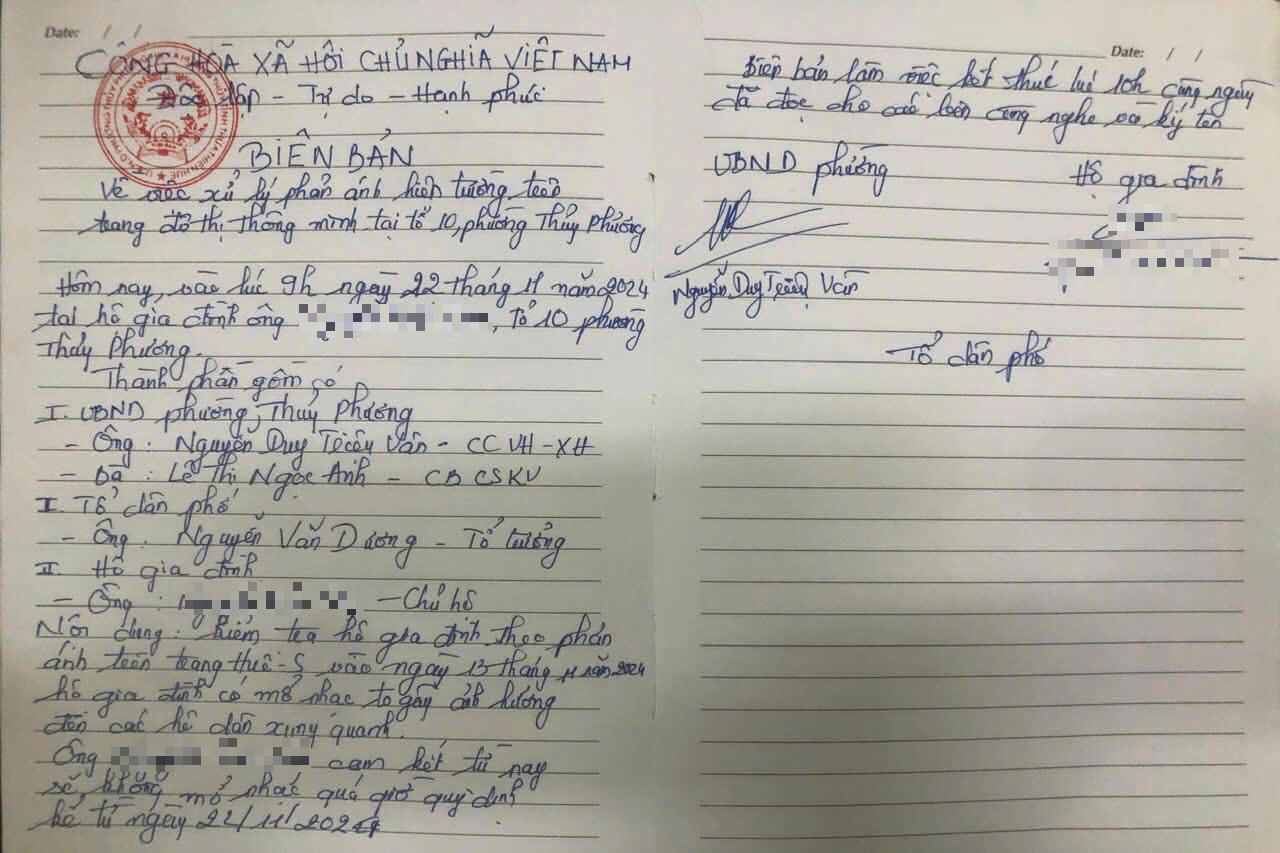 Date: / /
CỘNG HOÀ XÃ HỘI CHỦ NGHĨA VIỆT NAM
Độc lập - Tự do - Hạnh phúc
BIÊN BẢN
Về việc xử lý phản ánh hiện tượng trên
trang đô thị thông minh tại tổ 10, phường Thủy Phương
Hôm nay, vào lúc 9h ngày 22 tháng 11 năm 2024
tại hộ gia đình ông , Tổ 10 phường
Thủy Phương.
Thành phần gồm có
I. UBND phường Thủy Phương
- Ông: Nguyễn Duy Triều Vân - CC VH-XH
- Bà: Lê Thị Ngọc Anh - CB CSKV
I. Tổ dân phố
- Ông: Nguyễn Văn Dương - Tổ trưởng
II. Hộ gia đình
- Ông: - Chủ hộ
Nội dung: kiểm tra hộ gia đình theo phản
ánh trên trang Huế-S vào ngày 13 tháng 11 năm 2024
hộ gia đình có mở nhạc to gây ảnh hưởng
đến các hộ dân xung quanh.
Ông cam kết từ nay
sẽ không mở nhạc quá giờ quy định
kể từ ngày 22/11/2024
Date: / /
Biên bản làm việc kết thúc lúc 10h cùng ngày
đã đọc cho các bên cùng nghe và ký tên
UBND phường
Hộ gia đình
Nguyễn Duy Triều Vân
Tổ dân phố